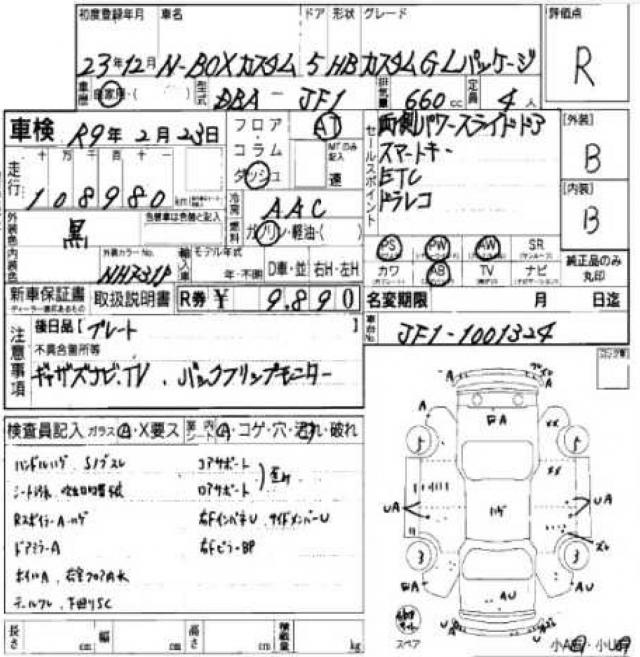 初度登録年月 車名 ドア 形状 グレード 評価点
23年12月 N-BOXカスタム 5 HB カスタムG・Lパッケージ R
車歴 自家用・( ) 型式 DBA-JF1 排気量 660cc 定員 4人
車検 R9年2月23日 フロア・コラム ダッシュ AT MTのみ記入 速
セールスポイント 両側パワースライドドア
スマートキー
ETC
ドラレコ
[外装] B
[内装] B
走行 十 万 千 百 十 一
108980 km
冷房 AAC
燃料 ガソリン・軽油・( )
外装色 黒 色替車は元色と記入
内装色 外装カラーNo. NH731P 輸入車 モデル年式 年・不明 D車・並 右H・左H
PS PW AW SR
カワ AB TV ナビ
純正品のみ丸印
新車保証書 取扱説明書 R券 ¥ 9,890
名変期限 月 日迄
注意事項 後日品【プレート 】
車台No. JF1-1001324
不具合箇所等
ギャザズナビ、TV、バックフリップモニター
検査員記入 ガラス A・X要ス 室内シート A・コゲ・穴・汚れ・破れ
ハンドルハゲ、Sノブスレ コアサポート
シート汚 ロアサポート
Rスポイラー・A・ハゲ 右FインパネU サイドメンバーU
ドアミラーA 右Fピラー BP
ホイルA
テールワレ、下廻りSC
A A
A XX
5 5
XX
UA ハゲ UA
スレ
3 3
AU AU
スペア
小A 小U
長さ cm 幅 cm 高さ cm 積載量 kg